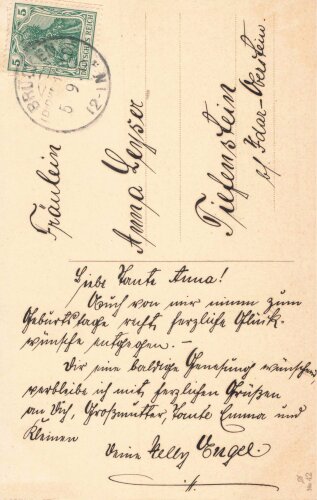 5 DEUTSCHES REICH 5
5 9
12-1N
Fräulein
Anna Leyser
Tiefenstein
b/ Idar-Oberstein.
Liebe Tante Anna!
Auch von mir nimm zum
Geburtstage recht herzliche Glück-
wünsche entgegen. –
Dir eine baldige Genesung wünschen,
verbleibe ich mit herzlichen Grüßen
an Dich, Großmutter, Tante Emma und
Kleinen
Deine Nelly Engel.